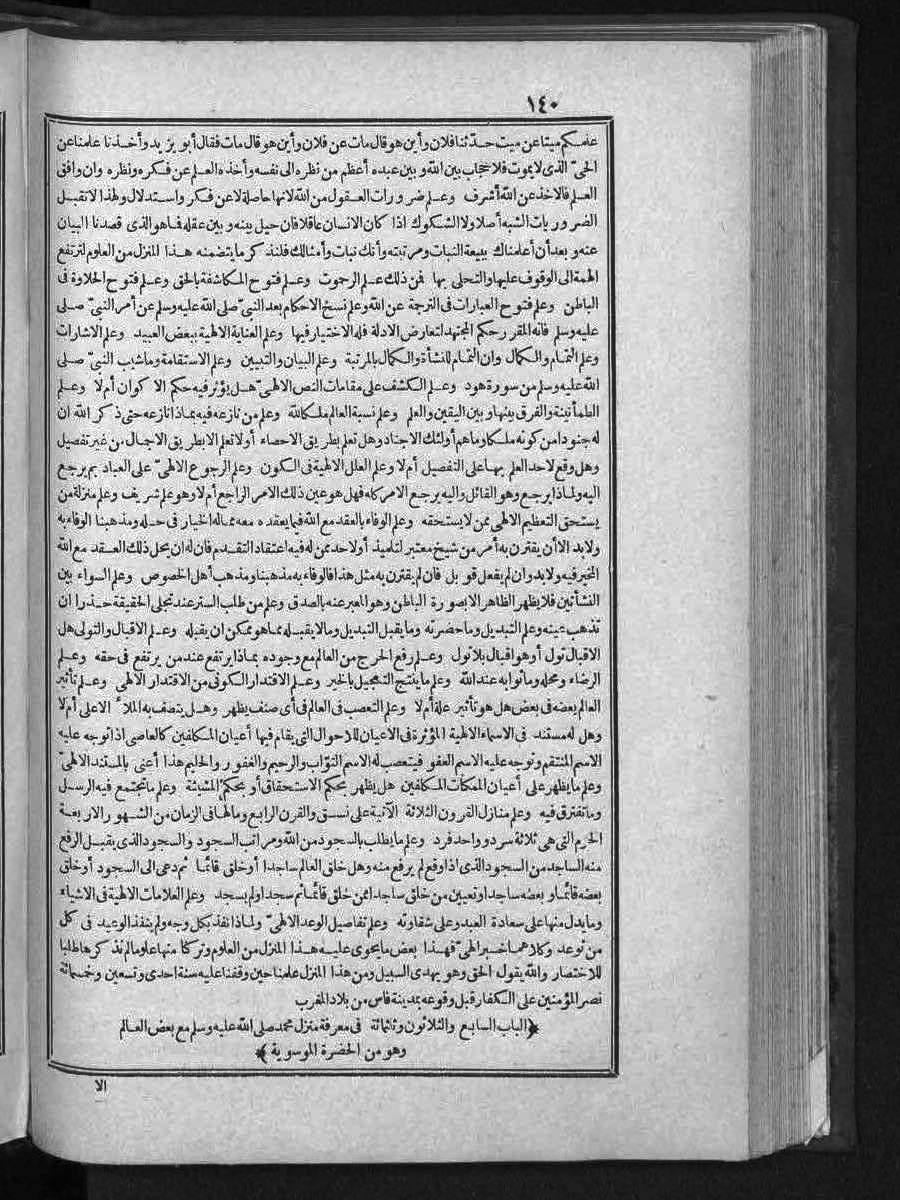 ١٤٠
علمكم ميتا عن ميت حدثنا فلان وأين هو قال مات عن فلان وأين هو قال مات فقال أبو يزيد وأخذنا علمنا عن
الحىّ الذى لا يموت فلا حجاب بين الله وبين عبده أعظم من نظره الى نفسه وأخذه العلم عن فكره ونظره وان وافق
العلم فالاخذ عن الله أشرف وعلم ضرورات العقول من الله لانها حاصلة لا عن فكر واستدلال ولهذا لا تقبل
الضروريات الشبه أصلا ولا الشكوك اذا كان الانسان عاقلا فان حيل بينه وبين عقله فما هو الذى قصدنا البيان
عنه وبعد أن أعلمناك ببيعة النبات ومرتبته وأنك نبات وأمثالك فلنذكر ما يتضمنه هذا المنزل من العلوم لترتفع
الهمة الى الوقوف عليها والتحلى بها فمن ذلك علم الرحموت وعلم فتوح المكاشفة بالحق وعلم فتوح الحلاوة فى
الباطن وعلم فتوح العبارات فى الترجمة عن الله وعلم نسخ الاحكام بعد النبىّ صلى الله عليه وسلم عن أمر النبىّ صلى
عليه وسلم فانه المقرر حكم المجتهد لتعارض الادلة فله الاختيار فيها وعلم العناية الالهية ببعض العبيد وعلم الاشارات
وعلم التمام والكمال وان التمام للنشأة والكمال بالمرتبة وعلم البيان والتبيين وعلم الاستقامة وما شيب النبىّ صلى
الله عليه وسلم من سورة هود وعلم الكشف على مقامات النص الالهىّ هل يؤثر فيه حكم الاكوان أم لا وعلم
الطمأنينة والفرق بينها وبين اليقين والعلم وعلم نسبة العالم ملكالله وعلم من نازعه فيه بماذا نازعه حتى ذكر الله ان
له جنودا من كونه ملكا وما هم أولئك الاجناد وهل تعلم بطريق الاحصاء أولا تعلم الا بطريق الاجمال من غير تفصيل
وهل وقع لاحد العلم بها على التفصيل أم لا وعلم العلل الالهية فى الكون وعلم الرجوع الالهىّ على العباد بم يرجع
اليه ولماذا يرجع وهو القائل واليه يرجع الامر كله فهل هو عين ذلك الامر الراجع أم لا وهو علم شريف وعلم منزلة من
يستحق التعظيم الالهى ممن لا يستحقه وعلم الوفاء بالعقد مع الله فيما يعقده معه مما له الخيار فى حله ومذهبنا الوفاء به
ولا بد الا أن يقترن به أمر من شيخ معتبر لتلميذ أو لاحد ممن له فيه اعتقاد التقدم فان له ان يحل ذلك العقد مع الله
المخير فيه ولا بد وان لم يفعل قوبل فان لم يقترن به مثل هذا فالوفاء به مذهبنا ومذهب أهل الخصوص وعلم السواء بين
النشأتين فلا يظهر الظاهر الا بصورة الباطن وهو المعبر عنه بالصدق وعلم من طلب الستر عند تجلى الحقيقة حذرا ان
تذهب عينه وعلم التبديل وما حضرته وما يقبل التبديل وما لا يقبله مما هو ممكن ان يقبله وعلم الاقبال والتولى هل
الاقبال تول أو هو اقبال بلا تول وعلم رفع الحرج من العالم مع وجوده بماذا يرتفع عند من يرتفع فى حقه وعلم
الرضاء ومحله وما ثوابه عند الله وعلم ما ينتج التعجيل بالخير وعلم الاقتدار الكونى من الاقتدار الالهى وعلم تأثير
العالم بعضه فى بعض هل هو تأثير علة أم لا وعلم التعصب فى العالم فى أى صنف يظهر وهل يتصف به الملأ الاعلى أم لا
وهل له مستند فى الاسماء الالهية المؤثرة فى الاعيان للاحوال التى يقام فيها أعيان المكلفين كالعاصى اذا توجه عليه
الاسم المنتقم وتوجه عليه الاسم العفو فيتعصب له الاسم التوّاب والرحيم والغفور والحليم هذا أعنى بالمستند الالهىّ
وعلم ما يظهر على أعيان الممكنات المكلفين هل يظهر بحكم الاستحقاق أو بحكم المشيئة وعلم ما تجتمع فيه الرسل
وما تفترق فيه وعلم منازل القرون الثلاثة الآتية على نسق والقرن الرابع ومالها فى الزمان من الشهور الاربعة
الحرم التى هى ثلاثة سرد وواحد فرد وعلم ما يطلب بالسجود من الله ومراتب السجود والسجود الذى يقبل الرفع
منه الساجد من السجود الذى اذا وقع لم يرفع منه وهل خلق العالم ساجدا أو خلق قائما ثم دعى الى السجود أو خلق
بعضه قائما وبعضه ساجدا وتعيين من خلق ساجدا ممن خلق قائما ثم سجد اولم يسجد وعلم العلامات الالهية فى الاشياء
وما يدل منها على سعادة العبد وعلى شقاوته وعلم تفاصيل الوعد الالهىّ ولماذا نفذ بكل وجه ولم ينفذ الوعيد فى كل
من توعد وكلاهما خبر الهىّ فهذا بعض ما يحوى عليه هذا المنزل من العلوم وتركنا منها علوما لم نذكرها طلبا
للاختصار والله يقول الحق وهو يهدى السبيل ومن هذا المنزل علمنا حين وقفنا عليه سنة احدى وتسعين وخمسمائة
نصر المؤمنين على الكفار قبل وقوعه بمدينة فاس من بلاد المغرب
﴿الباب السابع والثلاثون وثلثمائة فى معرفة منزل محمد صلى الله عليه وسلم مع بعض العالم
وهو من الحضرة الموسوية﴾
الا